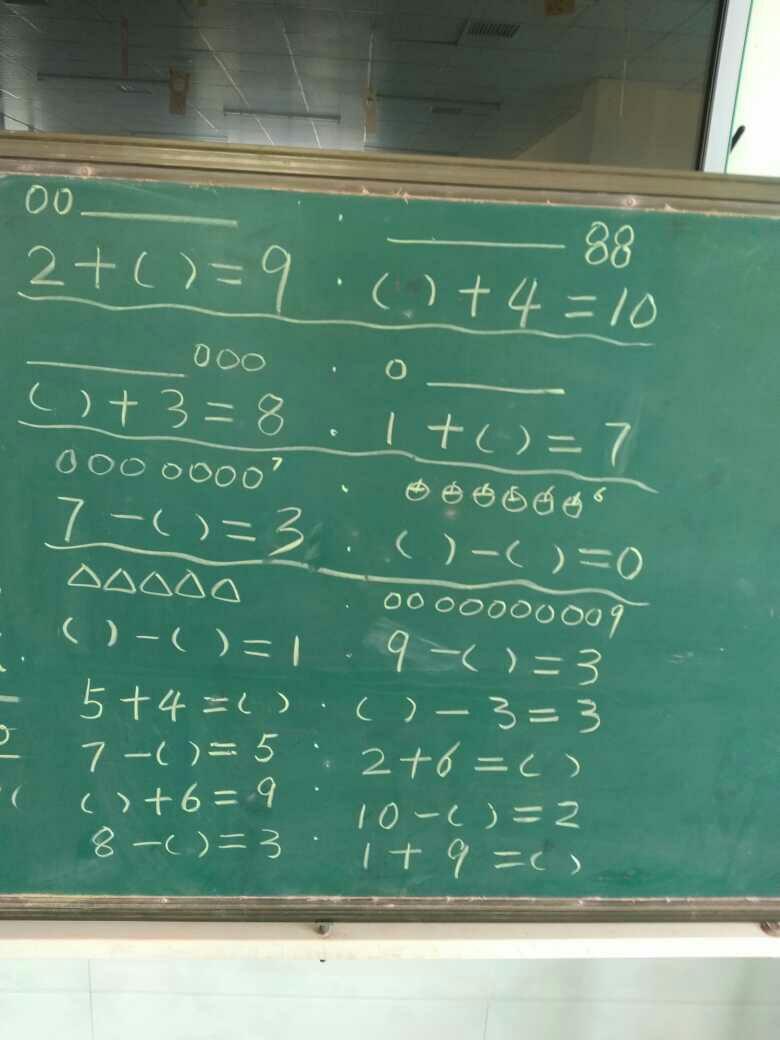 00 ________ · ________ 88
2+( )=9 · ( )+4=10
________ 000 · 0 ________
( )+3=8 · 1+( )=7
0000000 7 · 6
7-( )=3 · ( )-( )=0
△△△△△ · 000000000 9
( )-( )=1 · 9-( )=3
5+4=( ) · ( )-3=3
7-( )=5 · 2+6=( )
( )+6=9 · 10-( )=2
8-( )=3 · 1+9=( )